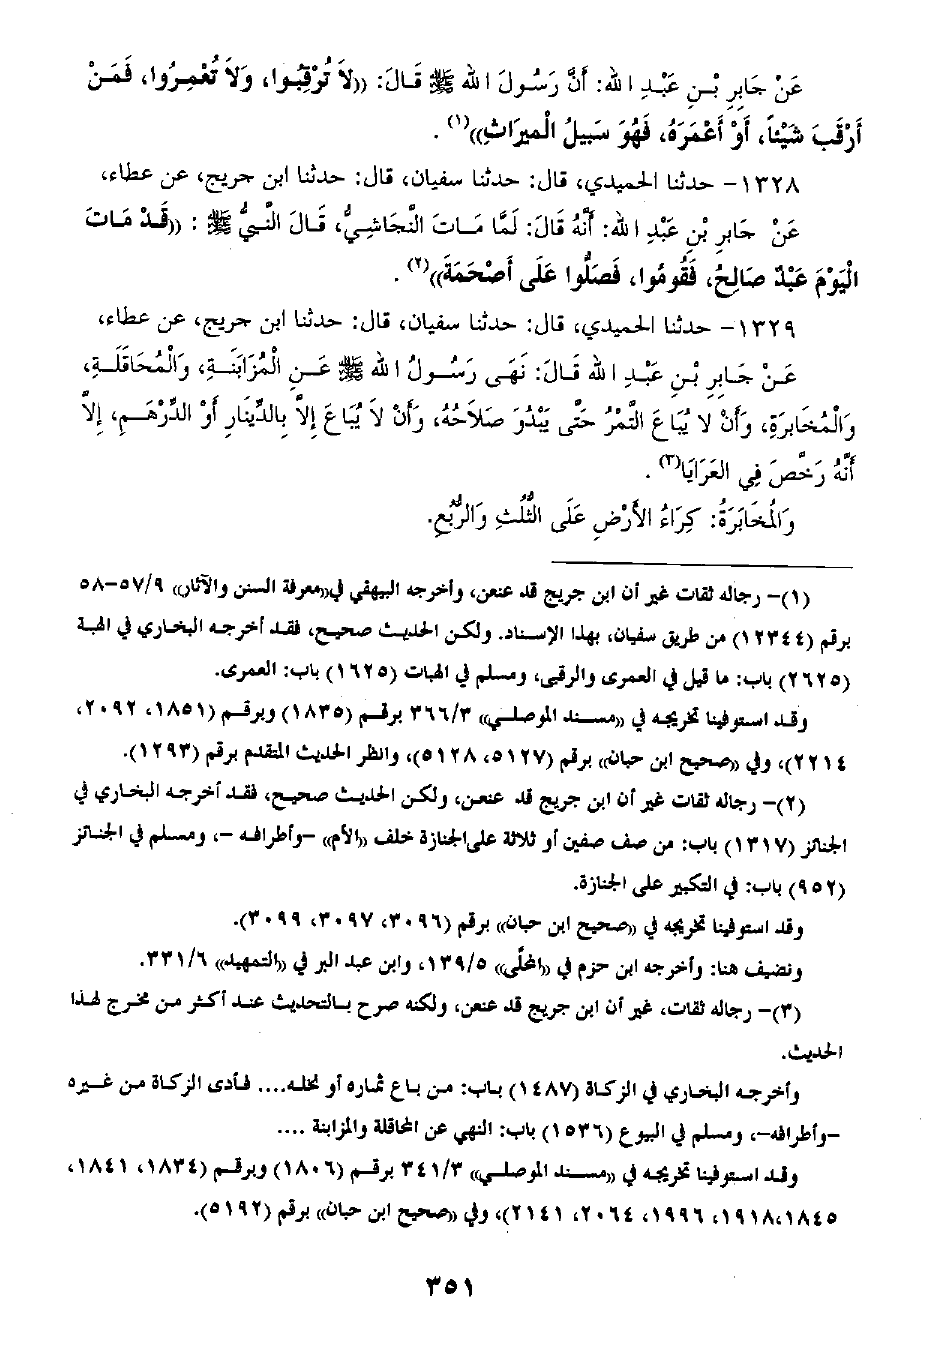 عَنْ جَابِرِ بْنِ عَبْدِ الله: أَنَّ رَسُولَ الله ﷺ قَالَ: ((لاَ تُرْقِبُوا، وَلاَ تُعْمِرُوا، فَمَنْ
أَرْقَبَ شَيْئاً، أَوْ أَعْمَرَهُ، فَهُوَ سَبِيلُ الْمِيرَاثِ))(١) .
١٣٢٨- حدثنا الحميدي، قال: حدثنا سفيان، قال: حدثنا ابن جريج، عن عطاء،
عَنْ جَابِرِ بْنِ عَبْدِ الله: أَنَّهُ قَالَ: لَمَّا مَاتَ النَّجَاشِيُّ، قَالَ النَّبِيُّ ﷺ : ((قَدْ مَاتَ
الْيَوْمَ عَبْدٌ صَالِحٌ، فَقُومُوا، فَصَلُّوا عَلَى أَصْحَمَةَ))(٢) .
١٣٢٩- حدثنا الحميدي، قال: حدثنا سفيان، قال: حدثنا ابن جريج، عن عطاء،
عَنْ جَابِرِ بْنِ عَبْدِ الله قَالَ: نَهَى رَسُولُ الله ﷺ عَنِ الْمُزَابَنَةِ، وَالْمُحَاقَلَةِ،
وَالْمُخَابَرَةِ، وَأَنْ لا يُبَاعَ التَّمْرُ حَتَّى يَبْدُوَ صَلاَحُهُ، وَأَنْ لاَ يُبَاعَ إِلاَّ بِالدِّينَارِ أَوْ الدِّرْهَمِ، إِلاَّ
أَنَّهُ رَخَّصَ فِي العَرَايَا(٣) .
وَالْمُخَابَرَةُ: كِرَاءُ الأَرْضِ عَلَى الثُّلُثِ وَالرُّبُعِ.
(١)- رجاله ثقات غير أن ابن جريج قد عنعن، وأخرجه البيهقي في((معرفة السنن والآثار)) ٥٧/٩-٥٨
برقم (١٢٣٤٤) من طريق سفيان، بهذا الإسناد. ولكن الحديث صحيح، فقد أخرجه البخاري في الهبة
(٢٦٢٥) باب: ما قيل في العمرى والرقبى، ومسلم في الهبات (١٦٢٥) باب: العمرى.
وقد استوفينا تخريجه في ((مسند الموصلي)) ٣٦٦/٣ برقم (١٨٣٥) وبرقم (١٨٥١، ٢٠٩٢،
٢٢١٤)، وفي ((صحيح ابن حبان)) برقم (٥١٢٧، ٥١٢٨)، وانظر الحديث المتقدم برقم (١٢٩٣).
(٢)- رجاله ثقات غير أن ابن جريج قد عنعن، ولكن الحديث صحيح، فقد أخرجه البخاري في
الجنائز (١٣١٧) باب: من صف صفين أو ثلاثة على الجنازة خلف ((الأم)) -وأطرافه -، ومسلم في الجنائز
(٩٥٢) باب: في التكبير على الجنازة.
وقد استوفينا تخريجه في ((صحيح ابن حبان)) برقم (٣٠٩٦، ٣٠٩٧، ٣٠٩٩).
ونضيف هنا: وأخرجه ابن حزم في ((المحلَّى)) ١٣٩/٥، وابن عبد البر في ((التمهيد)) ٣٣١/٦.
(٣)- رجاله ثقات، غير أن ابن جريج قد عنعن، ولكنه صرح بالتحديث عند أكثر من مخرج لهذا
الحديث.
وأخرجه البخاري في الزكاة (١٤٨٧) باب: من باع ثماره أو نخله.... فأدى الزكاة من غيره
-وأطرافه-، ومسلم في البيوع (١٥٣٦) باب: النهي عن المحاقلة والمزابنة ....
وقد استوفينا تخريجه في ((مسند الموصلي)) ٣٤١/٣ برقم (١٨٠٦) وبرقم (١٨٣٤، ١٨٤١،
١٨٤٥،١٩١٨، ١٩٩٦، ٢٠٦٤، ٢١٤١)، وفي ((صحيح ابن حبان)) برقم (٥١٩٢).
٣٥١